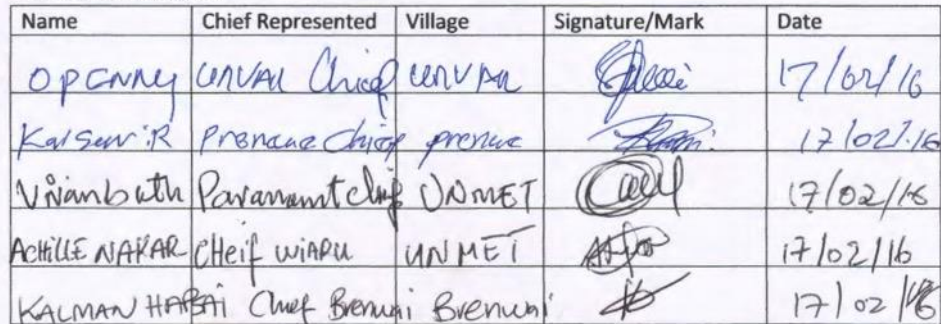 Name Chief Represented Village Signature/Mark Date
OPENNY UNVAN Chief UNVAN 17/02/16
Kalsew:R Prenaue Chief prenue 17/02/.16
Paramamt chief UNMET 17/02/16
ACHILLE NAKAR CHeif WIARU UNMET 17/02/16
KALMAN HABAI Chief Brenwei Brenwei 17/02/16